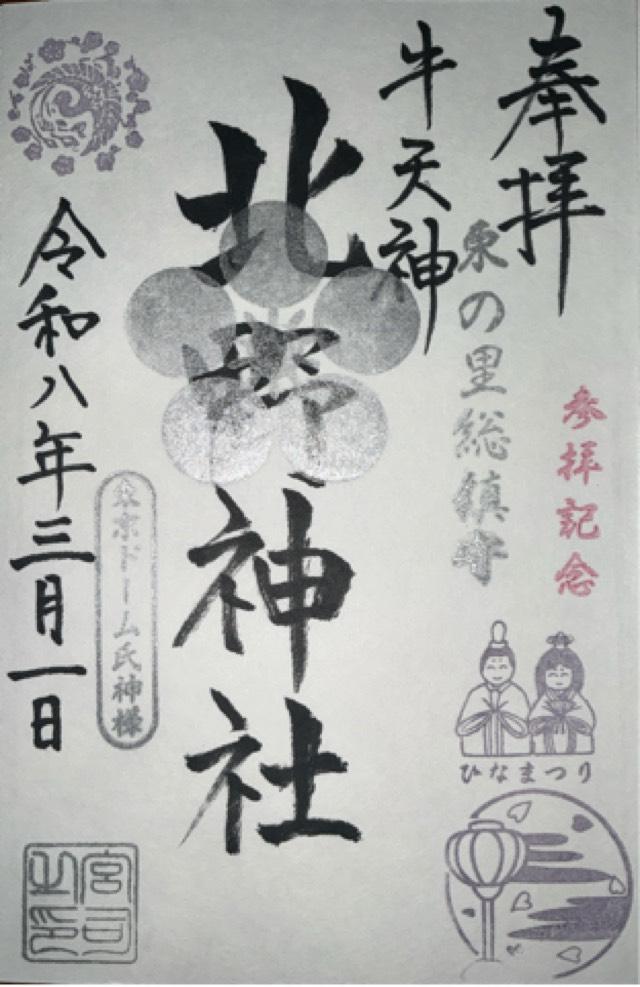 奉拝
参拝記念
牛天神
東の里総鎮守
北野神社
東京ドーム氏神様
令和八年三月一日
ひなまつり
宮司之印